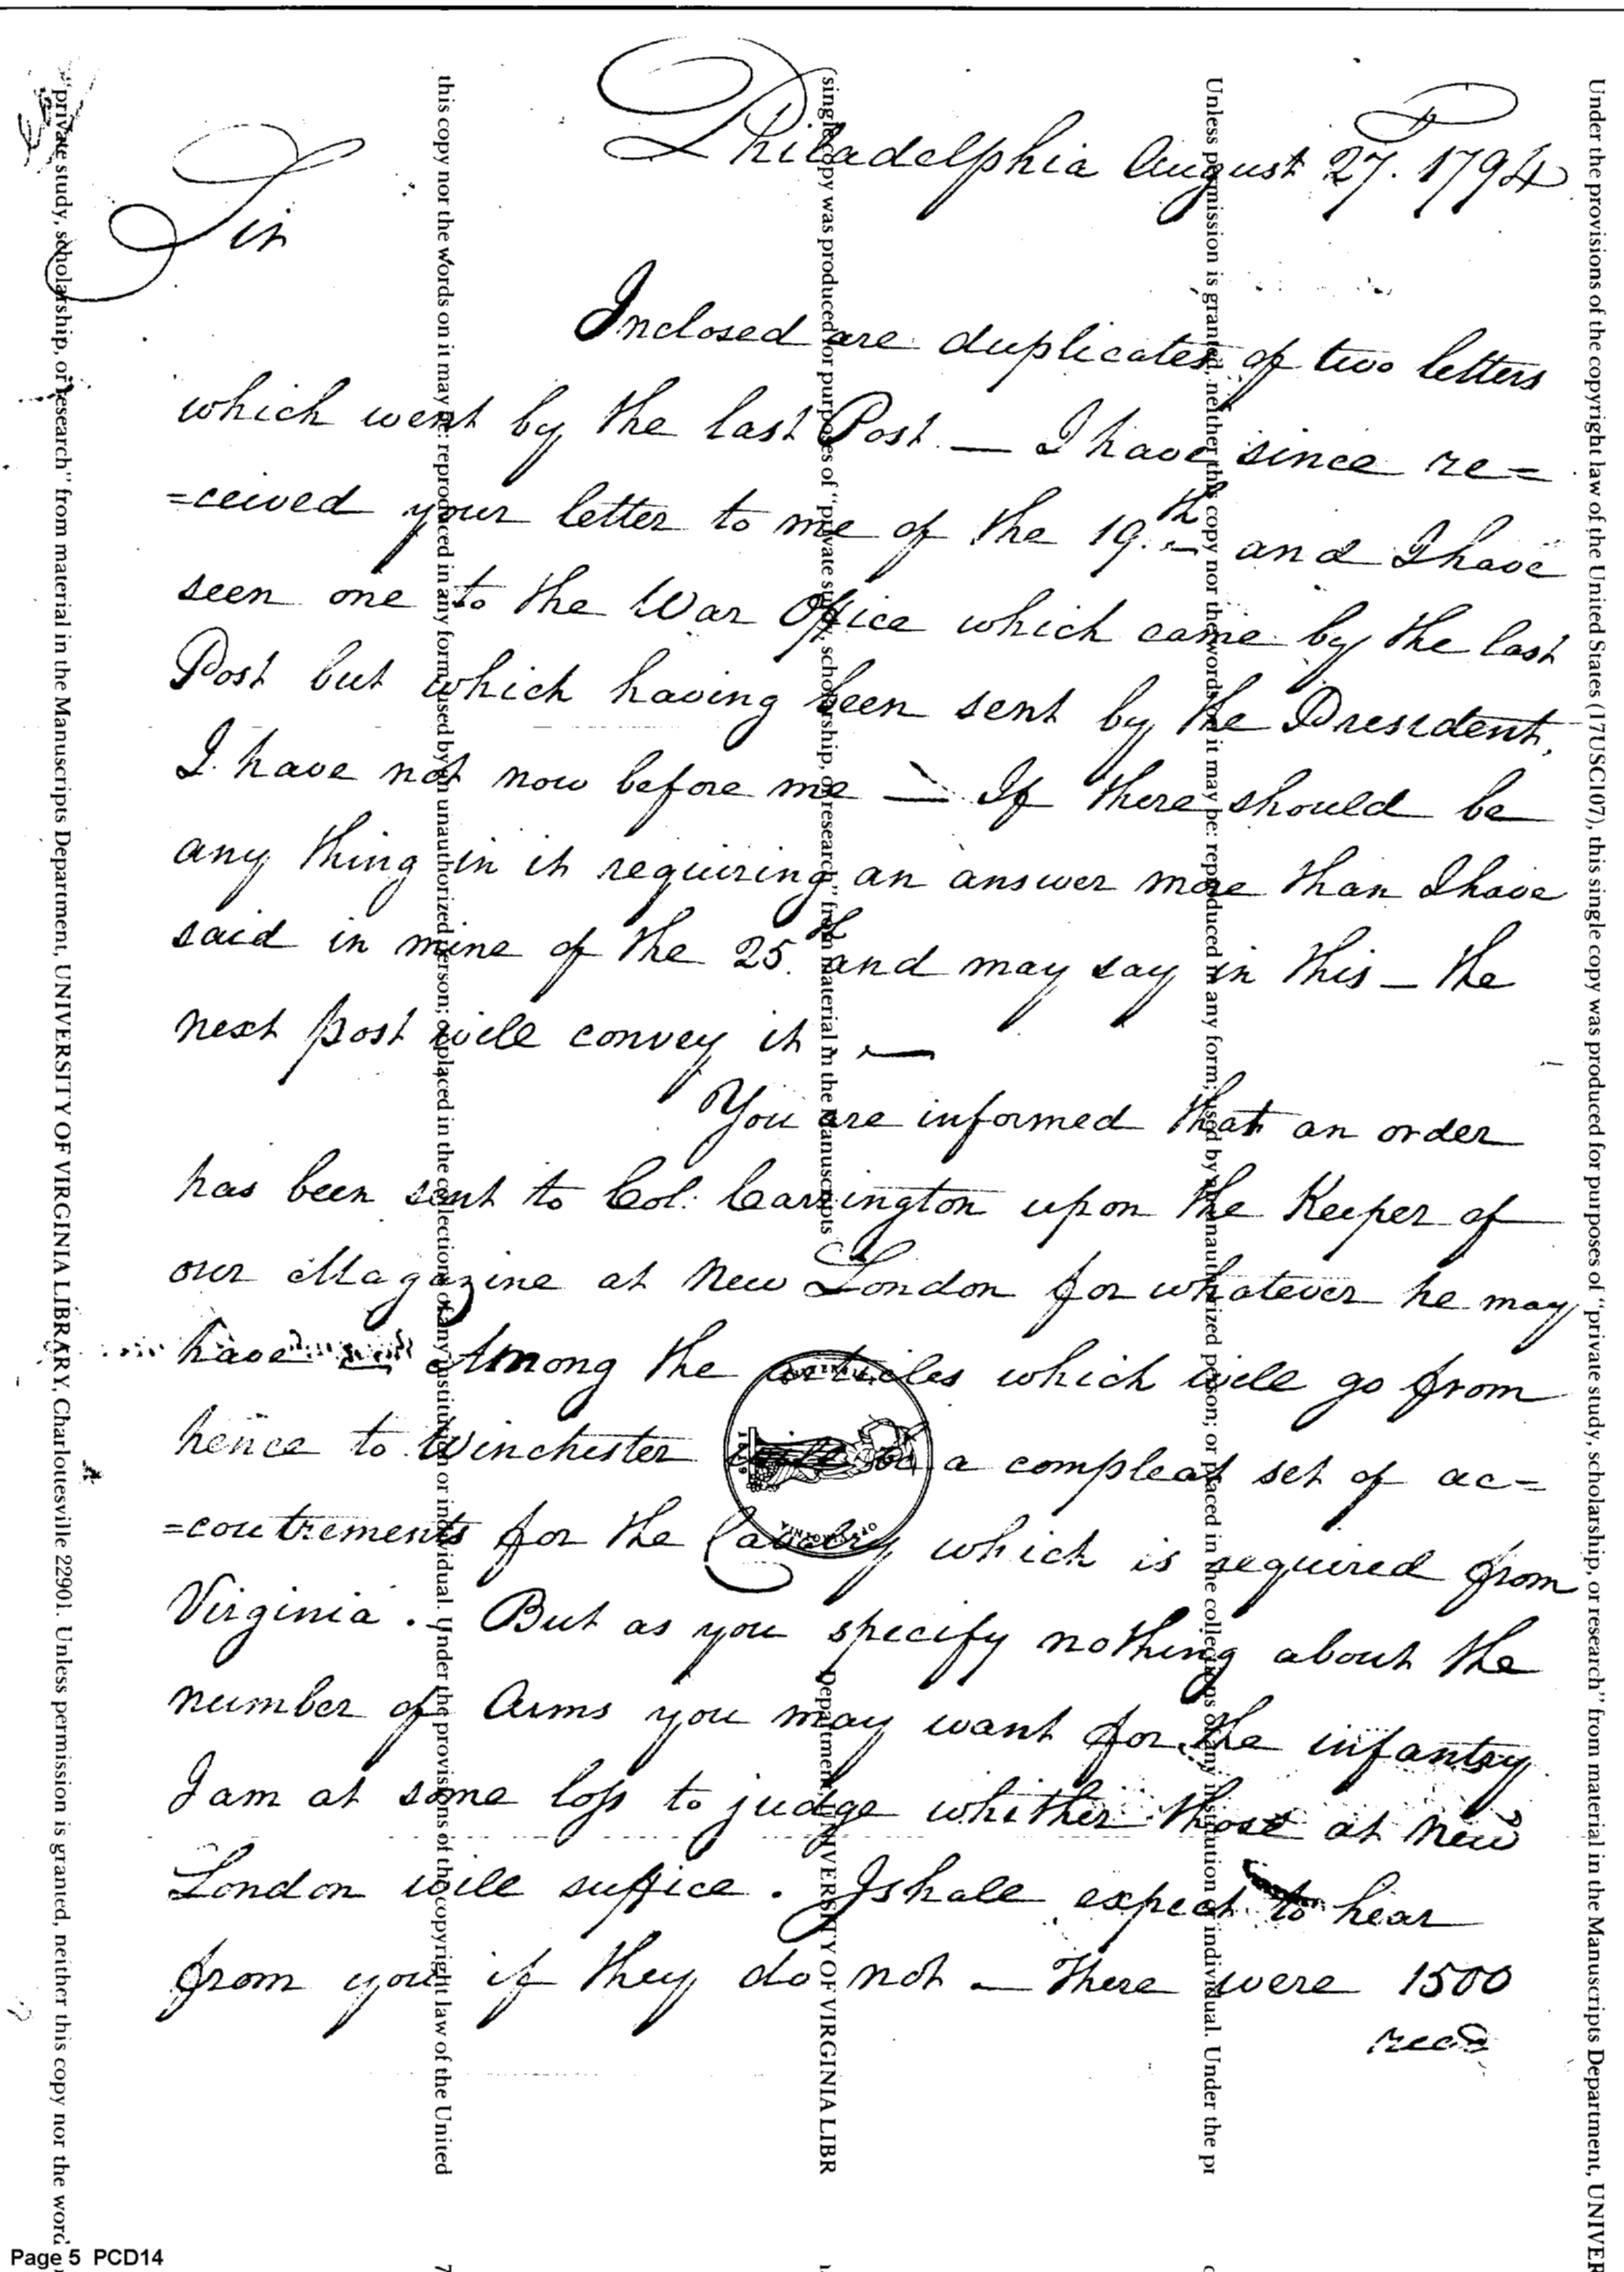 Philadelphia August 27. 1794
Sir
Inclosed are duplicates of two letters
which went by the last Post — I have since re=
=ceived your letter to me of the 19.th and I have
seen one to the War Office which came by the last
Post but which having been sent by the President,
I have not now before me — If there should be
any thing in it requiring an answer more than I have
said in mine of the 25.th and may say in this — the
next post will convey it —
You are informed that an order
has been sent to Col: Carrington upon the Keeper of
our Magazine at New London for whatever he may
have — Among the articles which will go from
hence to Winchester will be a compleat set of ac=
=coutrements for the Cavalry which is required from
Virginia. But as you specify nothing about the
number of Arms you may want for the infantry
I am at some loss to judge whether those at New
London will suffice. I shall expect to hear
from you if they do not — There were 1500
"private study, scholarship, or research" from material in the Manuscripts Department, UNIVERSITY OF VIRGINIA LIBRARY, Charlottesville 22901. Unless permission is granted, neither this copy nor the word
this copy nor the words on it may be: reproduced in any form; used by an unauthorized person; or placed in the collections of any institution or individual. Under the provisions of the copyright law of the United
single copy was produced for purposes of "private study, scholarship, or research" from material in the Manuscripts
Department, UNIVERSITY OF VIRGINIA LIBR
Unless permission is granted, neither this copy nor the words on it may be: reproduced in any form; used by an unauthorized person; or placed in the collections of any institution or individual. Under the pr
Under the provisions of the copyright law of the United States (17USC107), this single copy was produced for purposes of "private study, scholarship, or research" from material in the Manuscripts Department, UNIVER
Page 5 PCD14